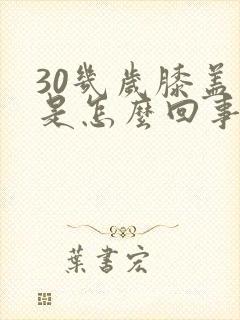 30幾歲膝蓋
是怎麼回事
葉書宏